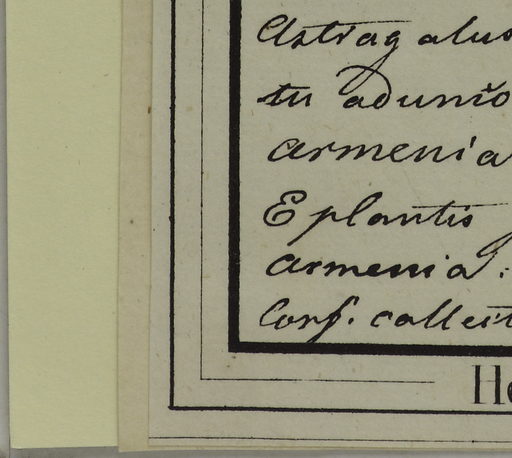 Astragalus
tu adunco
armenia
E plantis
armenia.
Conf. collect
He